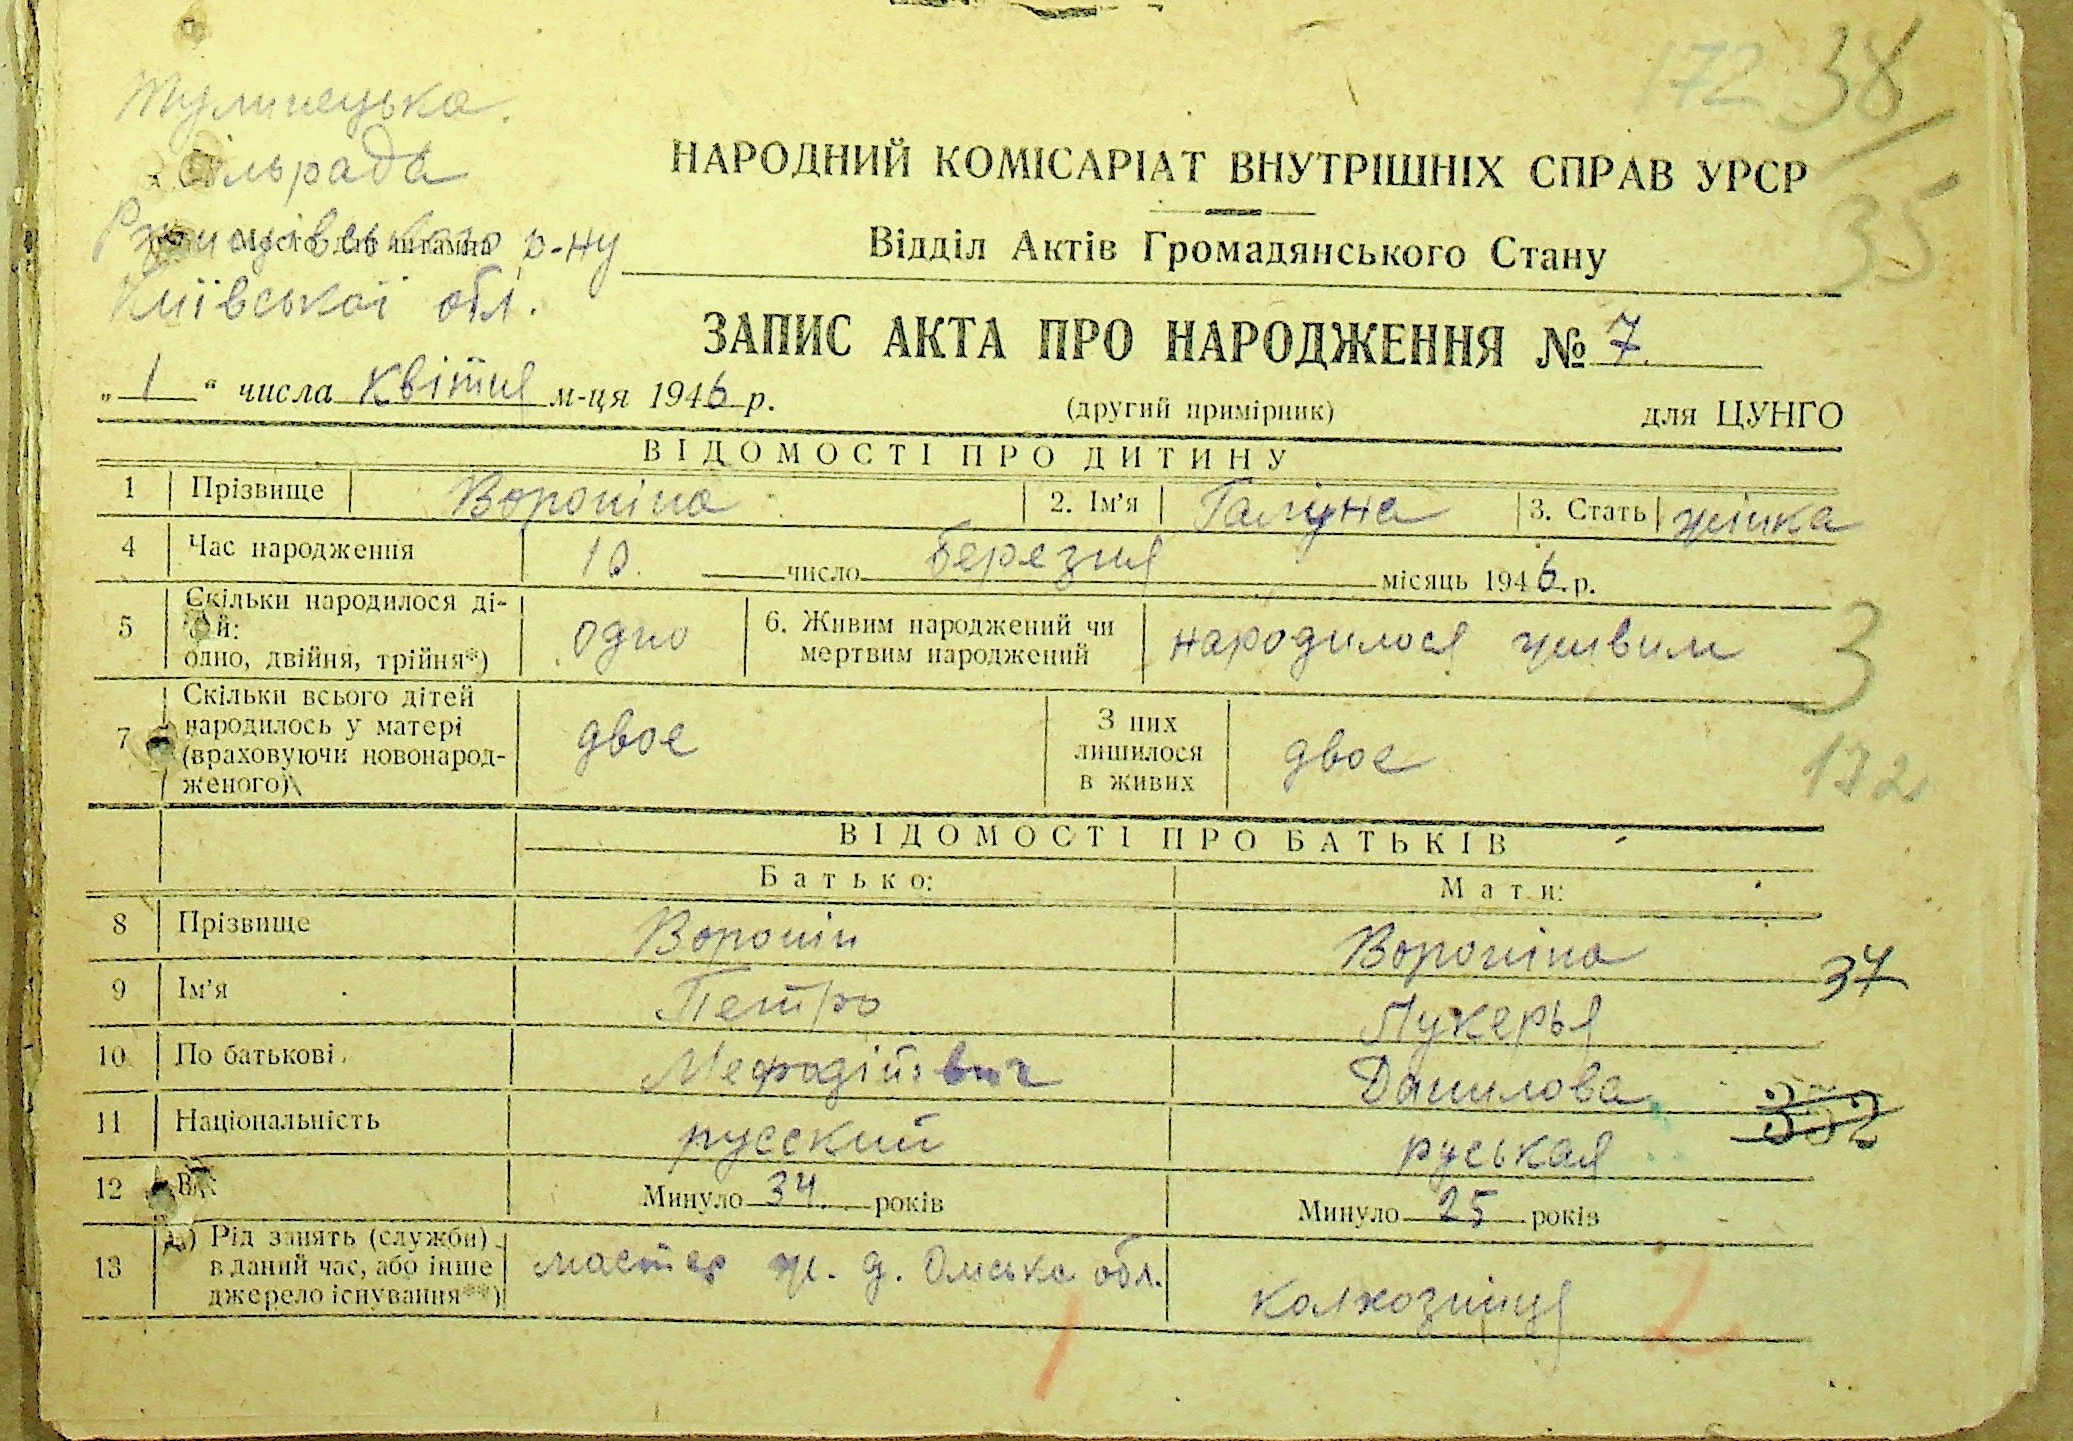 172 38
35
Тулинецька
сільрада
Ржищівського р-ну
Київської обл.
Місце для штампа
НАРОДНИЙ КОМІСАРІАТ ВНУТРІШНІХ СПРАВ УРСР
Відділ Актів Громадянського Стану
ЗАПИС АКТА ПРО НАРОДЖЕННЯ № 7
„ 1 “ числа квітня м-ця 1946 р. (другий примірник) для ЦУНГО
ВІДОМОСТІ ПРО ДИТИНУ
1 Прізвище Вороніна 2. Ім'я Галина 3. Стать жінка
4 Час народження 10. число березня місяць 1946. р.
5 Скільки народилося дітей: одно, двійня, трійня*) одно 6. Живим народжений чи мертвим народжений народилося живим
3
7 Скільки всього дітей народилось у матері (враховуючи новонародженого) двое З них лишилося в живих двое
172
ВІДОМОСТІ ПРО БАТЬКІВ
Батько: Мати:
8 Прізвище Воронін Вороніна
37
9 Ім'я Петро Лукерья
10 По батькові Мефодійвич Данилова
352
11 Національність русский руськая
12 Вік: Минуло 34 років Минуло 25 років
13 а) Рід занять (служби) в даний час, або інше джерело існування**) мастер ж. д. Омська обл. колхозниця